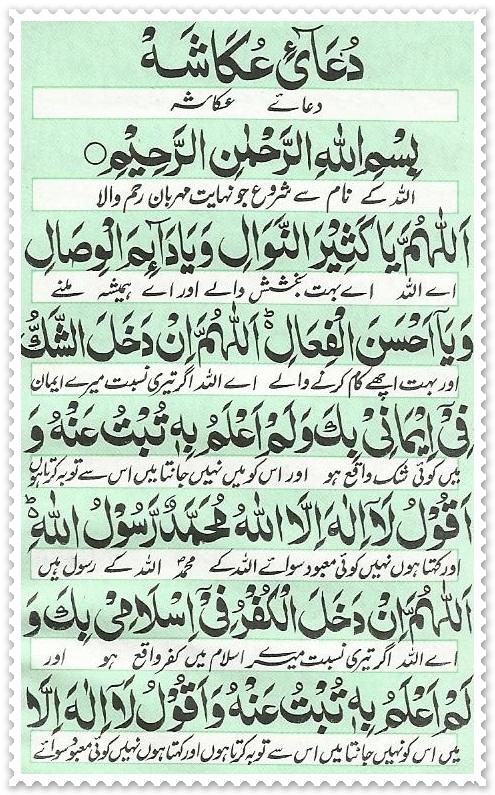 دُعَائِ عُكَاشَهْ
دعائے عکاشہ
بِسْمِ اللهِ الرَّحْمٰنِ الرَّحِيْمِ○
اللہ کے نام سے شروع جو نہایت مہربان رحم والا
اَللّٰهُمَّ يَا كَثِيْرَ النَّوَالِ وَيَا دَآئِمَ الْوِصَالِ
اے اللہ اے بہت بخشش والے اور اے ہمیشہ ملنے
وَيَآ اَحْسَنَ الْفِعَالِ ؕ اَللّٰهُمَّ اِنْ دَخَلَ الشَّكُّ
اور بہت اچھے کام کرنے والے اے اللہ اگر تیری نسبت میرے ایمان
فِيْٓ اِيْمَانِيْ بِكَ وَلَمْ اَعْلَمْ بِهٖ تُبْتُ عَنْهُ وَ
میں کوئی شک واقع ہو اور اس کو میں نہیں جانتا میں اس سے توبہ کرتا ہوں
اَقُوْلُ لَآ اِلٰهَ اِلَّا اللهُ مُحَمَّدٌ رَّسُوْلُ اللهِ ؕ
اور کہتا ہوں نہیں کوئی معبود سوائے اللہ کے محمدؐ اللہ کے رسول ہیں
اَللّٰهُمَّ اِنْ دَخَلَ الْكُفْرُ فِيْٓ اِسْلَامِيْ بِكَ وَ
اے اللہ اگر تیری نسبت میرے اسلام میں کفر واقع ہو اور
لَمْ اَعْلَمْ بِهٖ تُبْتُ عَنْهُ وَ اَقُوْلُ لَآ اِلٰهَ اِلَّا
میں اس کو نہیں جانتا میں اس سے توبہ کرتا ہوں اور کہتا ہوں نہیں کوئی معبود سوائے